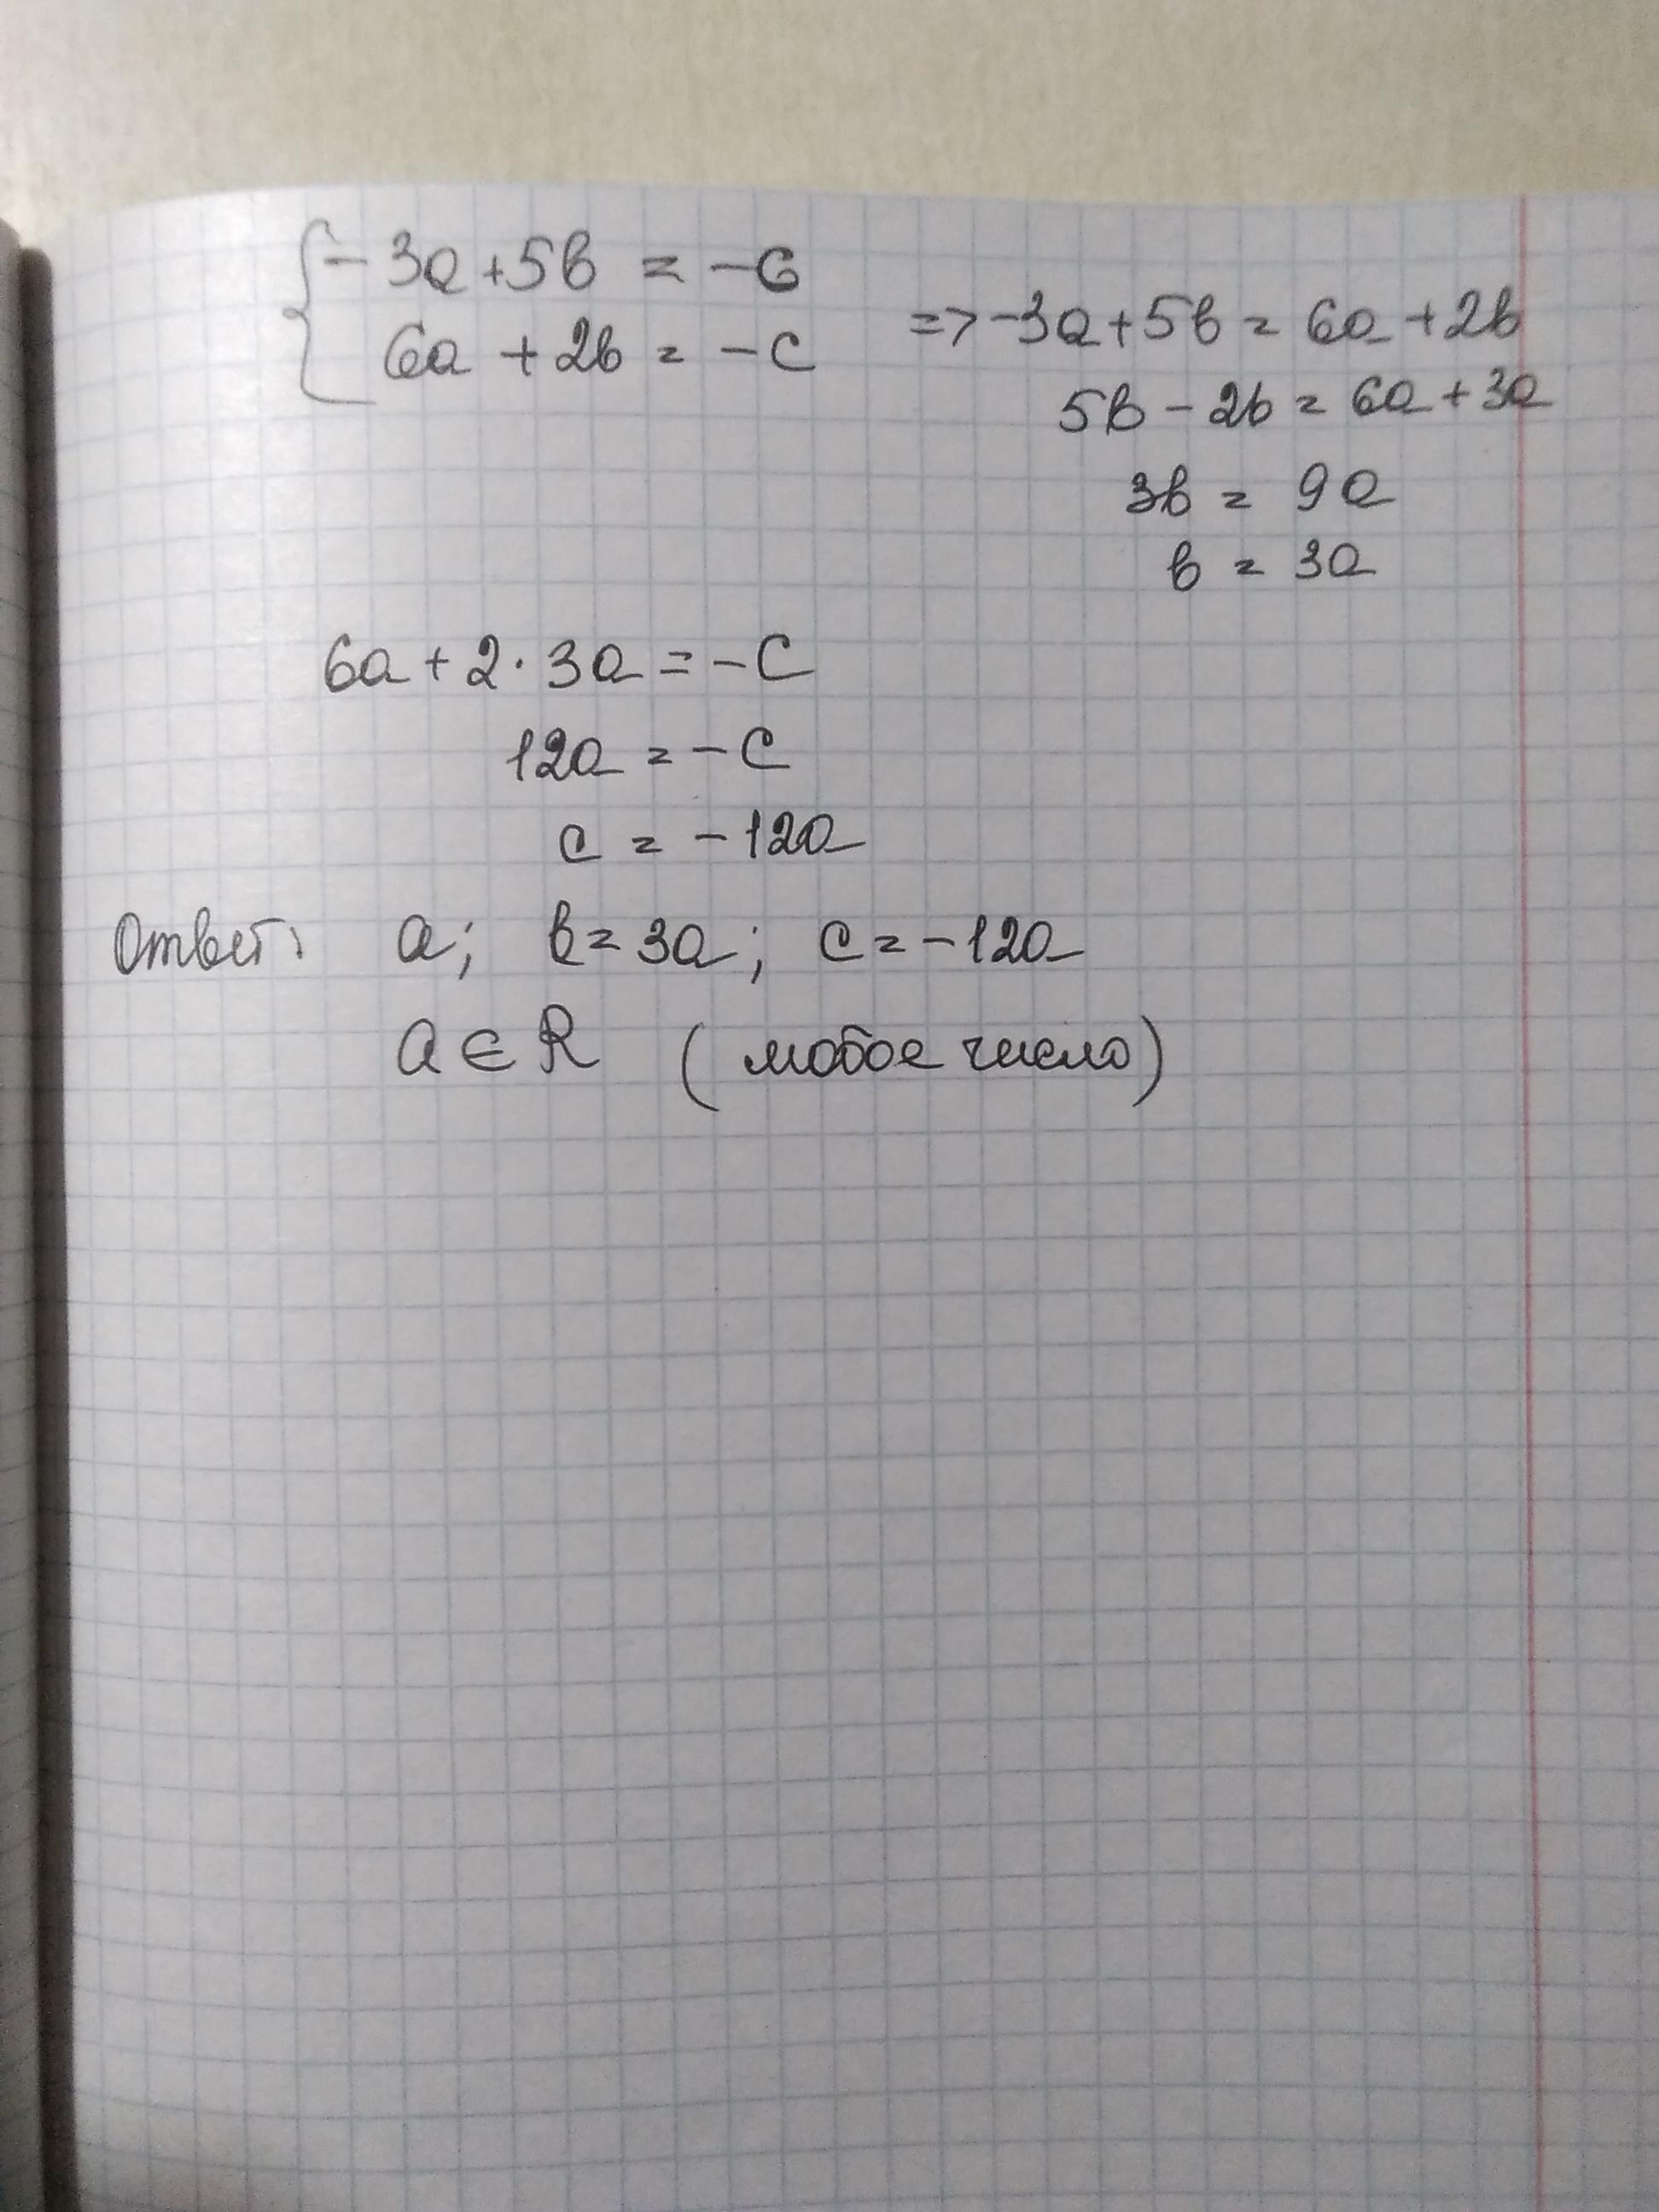 { -3a + 5b = -c
6a + 2b = -c
=> -3a + 5b = 6a + 2b
5b - 2b = 6a + 3a
3b = 9a
b = 3a
6a + 2 · 3a = -c
12a = -c
c = -12a
Ответ: a; b = 3a; c = -12a
a ∈ R (любое число)